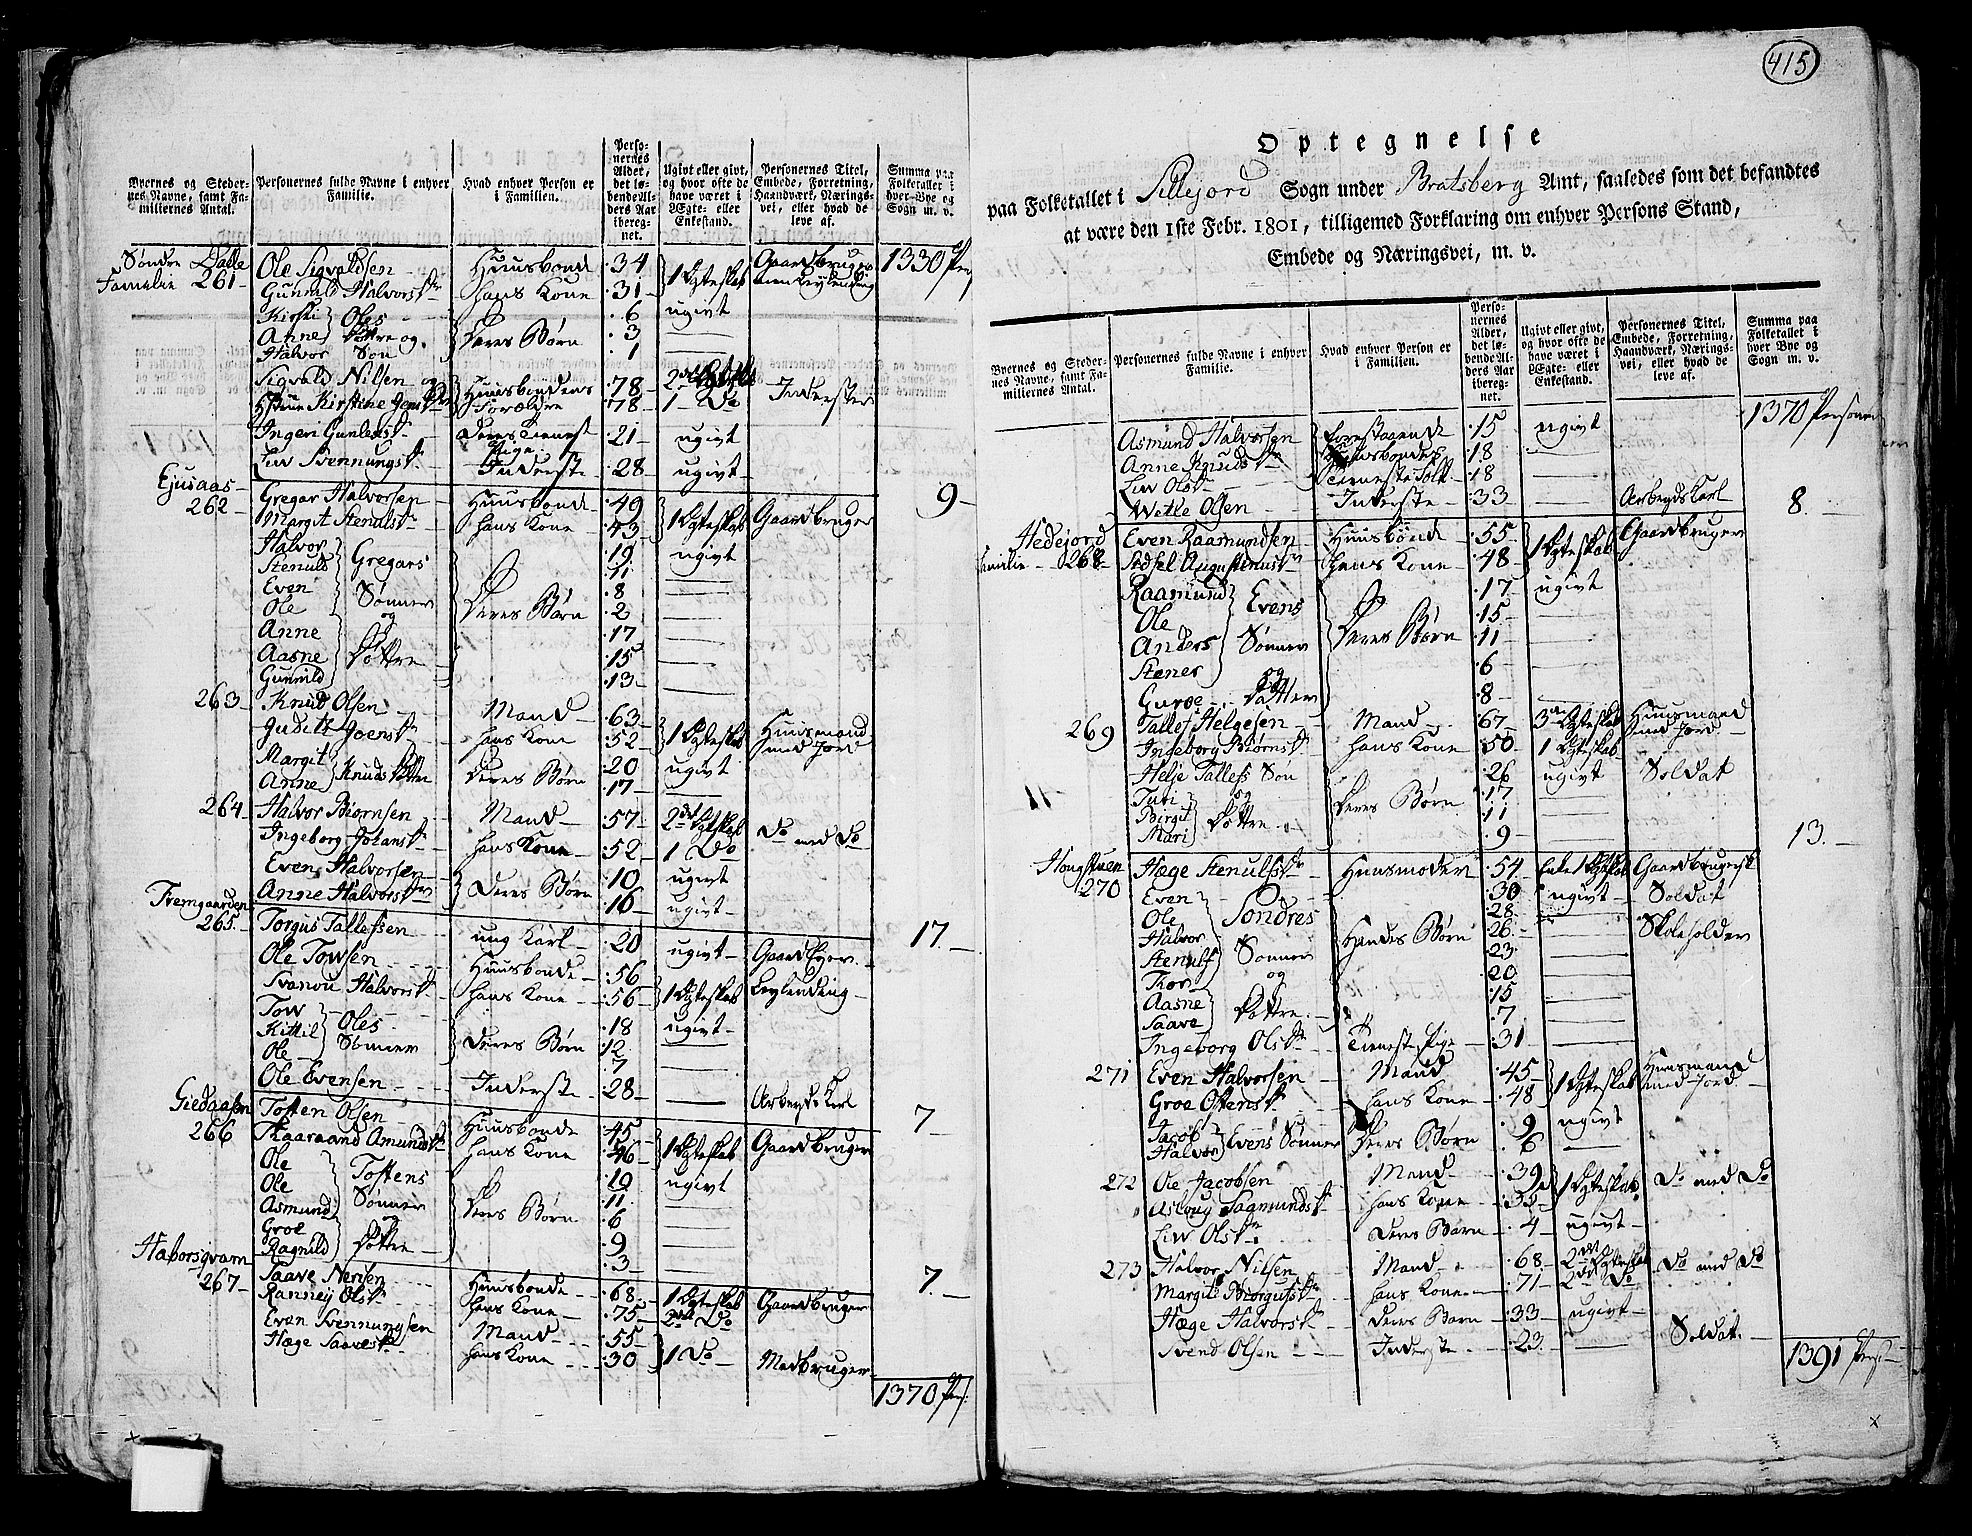 Byernes og Steder-
nes Navne, samt Fa-
miliernes Antal.
Personernes fulde Navne i enhver
Familie.
Hvad enhver Person er
i Familien.
Perso-
nernes
Alder,
det lø-
bende Al-
ders Aar
ibereg-
net.
Ugivt eller givt,
og hvor ofte de
have været i
Ægte- eller
Enkestand.
Personernes Titel,
Embede, Forretning,
Haandværk, Nærings-
vei, eller hvad de
leve af.
Summa paa
Folketallet i
hver Bye og
Sogn m. v.
Søndre Dalle
Familie 261 Ole Sigvaldsen Huusbonde 34 1 Ægteskab Gaardbruger 1330 Pers
Gunnild Halvorsdr hans Kone 31
Kirsti } Oles 6 ugivt
Anne } Døttre og } Deres Børn 3
Halvor Søn 1
Sigvald Nilsen og Huusbondens 78 2det Ægteskab Inderster
Kirstine Jensdr Forældre 78 1 Do
Ingeri Gunlefsdr deres Tieneste Pige 21 ugivt
Liv Svennungsdr Inderste 28 ugivt
Ejusaas
262 Gregar Halvorsen Huusbonde 49 1 Ægteskab Gaardbruger 9
Margit Stenulsdr hans Kone 43
Halvor 19 ugivt
Stenuld } Gregars 11
Even 8
Ole Sønner 2
og } Deres Børn
Anne 17
Aasne } Døttre 15
Gunnild 13
263 Knud Olsen Mand 63 1 Ægteskab Huusmand
Judith Joensdr hans Kone 52 med Jord
Margit } Knuds Døttre Deres Børn 20 ugivt
Anne 17
264 Halvor Biørnsen Mand 57 2det Ægteskab Do med Do
Ingeborg Johansdr hans Kone 52 1 Do
Even Halvorsen } Deres Børn 10 ugivt
Anne Halvorsdr 16 ugivt
Fremgaarden
265 Torgus Tallefsen ung Karl 20 ugivt Gaard Eyer 17
Ole Towsen Huusbonde 56 1 Ægteskab Leylending
Svanou Halvorsdr hans Kone 56
Tow } Oles 18 ugivt
Kittil } Sønner Deres Børn 12
Ole 7
Ole Evensen Inderste 28 Arbeyds Karl
Giedaasen
266 Tosten Olsen Huusbonde 45 1 Ægteskab Gaardbruger 7
Taaraand Amundsdr hans Kone 46
Ole Tostens 19 ugivt
Ole Sønner 11
Asmund og Deres Børn 6
Groe 9
Ragnild Døttre 3
Haborsqvarn
267 Saave Nerisen Huusbonde 68 1 Ægteskab Gaardbruger 7
Ranney Olsdr hans Kone 75 2det Do
Even Svennungsen Mand 55 1 Do Medbruger
Hæge Saavesdr hans Kone 30
1370 Pers:
415
Optegnelse
paa Folketallet i Sillejord Sogn under Bratsberg Amt, saaledes som det befandtes
at være den 1ste Febr. 1801, tilligemed Forklaring om enhver Persons Stand,
Embede og Næringsvei, m. v.
Byernes og Steder-
nes Navne, samt Fa-
miliernes Antal.
Personernes fulde Navne i enhver
Familie.
Hvad enhver Person er
i Familien.
Perso-
nernes
Alder,
det lø-
bende Al-
ders Aar
ibereg-
net.
Ugivt eller givt,
og hvor ofte de
have været i
Ægte- eller
Enkestand.
Personernes Titel,
Embede, Forretning,
Haandværk, Nærings-
vei, eller hvad de
leve af.
Summa paa
Folketallet i
hver Bye og
Sogn m. v.
1370 Personer
Asmund Halvorsen 15 ugivt
Anne Knudsdr Huusbondes 18
Liv Olsdr Tieneste Folk 18
Wetle Olsen Inderste 33 Arbeyds Karl 8
Hedejord
Familie 268 Even Raamundsen Huusbonde 55 1 Ægteskab Gaardbruger
Sidsel Augustinusdr hans Kone 48
Raamund } Evens 17 ugivt
Ole 15
Anders } Sønner Deres Børn 11
Stener og 6
Guroe Datter 8
269 Tallef Helgesen Mand 67 3die Ægteskab Huusmand
Ingeborg Biørnsdr hans Kone 50 1 Ægteskab med Jord
Helje Tallefs Søn 26 ugivt Soldat
Turi og Deres Børn 17
Birgit } Døttre 11
Mari 9 13
270 Hæge Stenulsdr Huusmoder 54 Enke 1 Ægteskab Gaardbrugersk
Even 30 ugivt Soldat
Ole } Sondres 28
Halvor 26 Skoleholder
Stenulf } Sønner Hendes Børn 23
Thor og 20
Aasne 15
Saave } Døttre 7
Ingeborg Olsdr Tieneste Pige 31
271 Even Halvorsen Mand 45 1 Ægteskab Huusmand
Groe Ostensdr hans Kone 48 med Jord
Jacob } Evens Sønner Deres Børn 9 ugivt
Halvor 6
272 Ole Jacobsen Mand 39 1 Ægteskab Do med Do
Asloug Sagmundsdr hans Kone 35
Liv Olsdr deres Barn 4 ugivt
273 Halvor Nilsen Mand 68 2det Ægteskab Do med Do
Margit Torgusdr hans Kone 71 2det Do
Hæge Halvorsdr deres Barn 33 ugivt
Svend Olsen Inderste 23 Soldat
1391 Pers